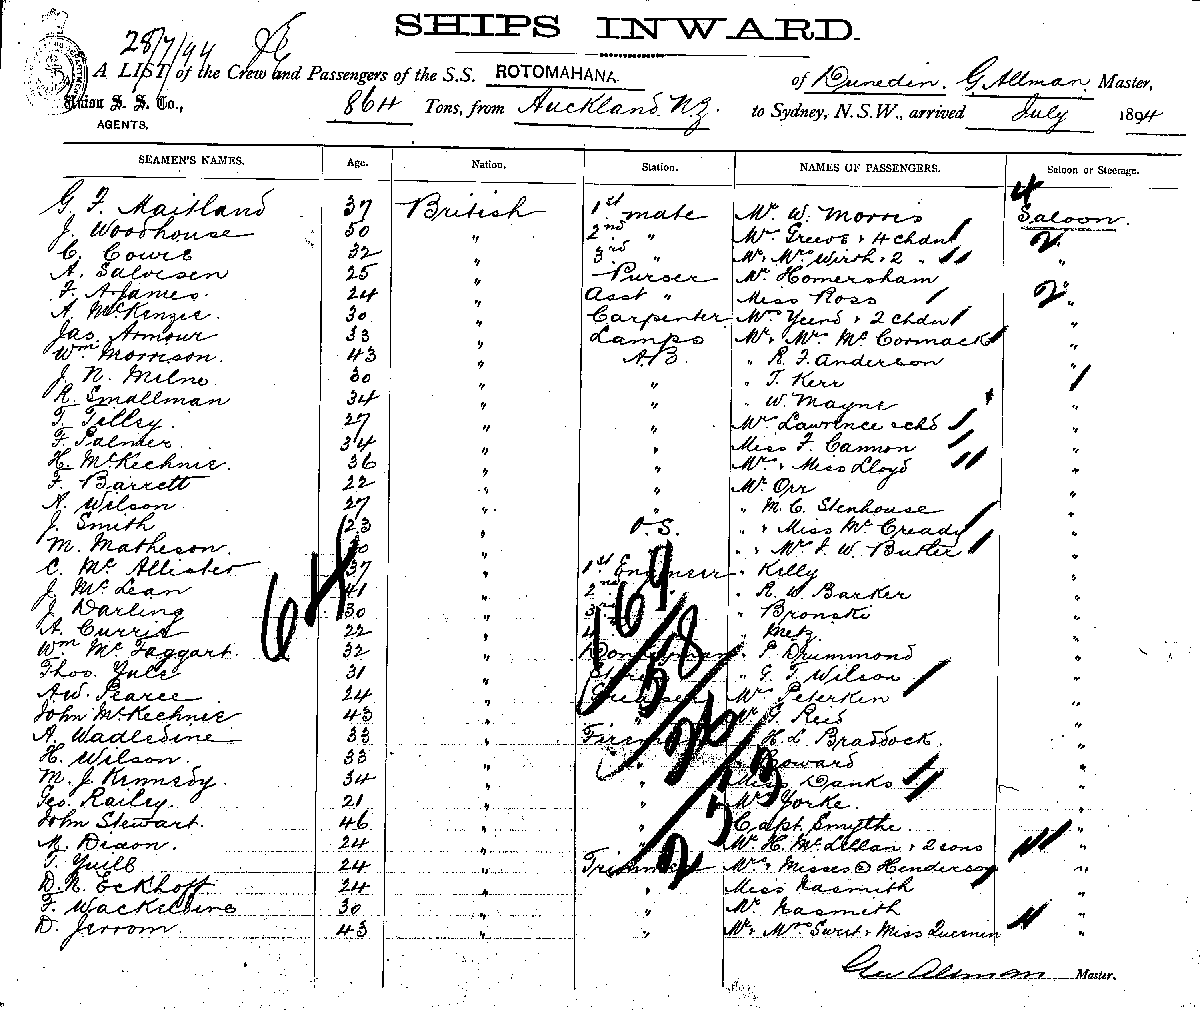 SHIPS INWARD.
28/7/94
A LIST of the Crew and Passengers of the S.S. ROTOMAHANA of Dunedin. G. Allman, Master,
Union S. S. Co., 864 Tons, from Auckland N.Z. to Sydney, N.S.W., arrived July 1894
AGENTS.
SEAMEN'S NAMES. Age. Nation. Station. NAMES OF PASSENGERS. Saloon or Steerage.
4
G. F. Maitland 37 British 1st mate Mr W. Morris Saloon.
J. Woodhouse 50 " 2nd " Mrs Greeve + 4 chdn 2 "
C. Cowie 32 " 3rd " Mr + Mrs Wirth + 2 " "
A. Salvesen 25 " Purser Mr Homersham
F. A. James. 24 " Asst " Miss Ross 2 "
A. McKenzie. 30 " Carpenter Mrs + 2 chdn "
Jas. Armour 33 " Lamps Mr + Mrs McCormack "
Wm Morrison. 43 " A.B. " R. F. Anderson "
J. N. Milne 30 " " " T. Kerr "
R. Smallman 34 " " " W. Mayne "
T. Tilley. 27 " " Mrs Lawrence "
F. Palmer. 34 " " Miss F. Cannon "
H. McKechnie. 36 " " Mrs + Miss Lloyd "
F. Barrett 22 " " Mr Orr "
A. Wilson 27 " " " M. C. Stenhouse "
J. Smith 23 " O.S. " + Miss McCready "
M. Matheson. " " + Mrs F. W. Butler "
C. McAllister 37 " 1st Engineer " Kelly "
J. McLean 41 " 2nd " R. W. Barker "
J. Darling 30 " 3rd " Bronski "
A. Currie 22 " 4 " Metz. "
Wm McTaggart. 32 " Donkeyman " P. Drummond "
Thos. Yule 31 " " G. T. Wilson "
A.W. Pearce 24 " Greaser Mrs Peterken "
John McKechnie 43 " Mr G. Reid "
A. Wadledine 33 " Firem " H. L. Braddock. "
H. Wilson. 33 " " " Howard "
M. J. Kennedy 34 " " Miss Danks "
Geo. Railey. 21 " Mr Yorke. "
John Stewart. 46 " Capt. Smythe "
R. Dixon. 24 " Mr H. McLellan + 2 sons "
T. Yuill 24 " Trimmer Mrs + Misses Henderson "
D. R. Eckhoff 24 " " Miss Nasmith "
F. Wackeldine 30 " " Mr Nasmith "
D. Jerrom. 43 " " Mr + Mrs Sweet + Miss Quernin "
64
169
58
26
253
Geo Allman Master.